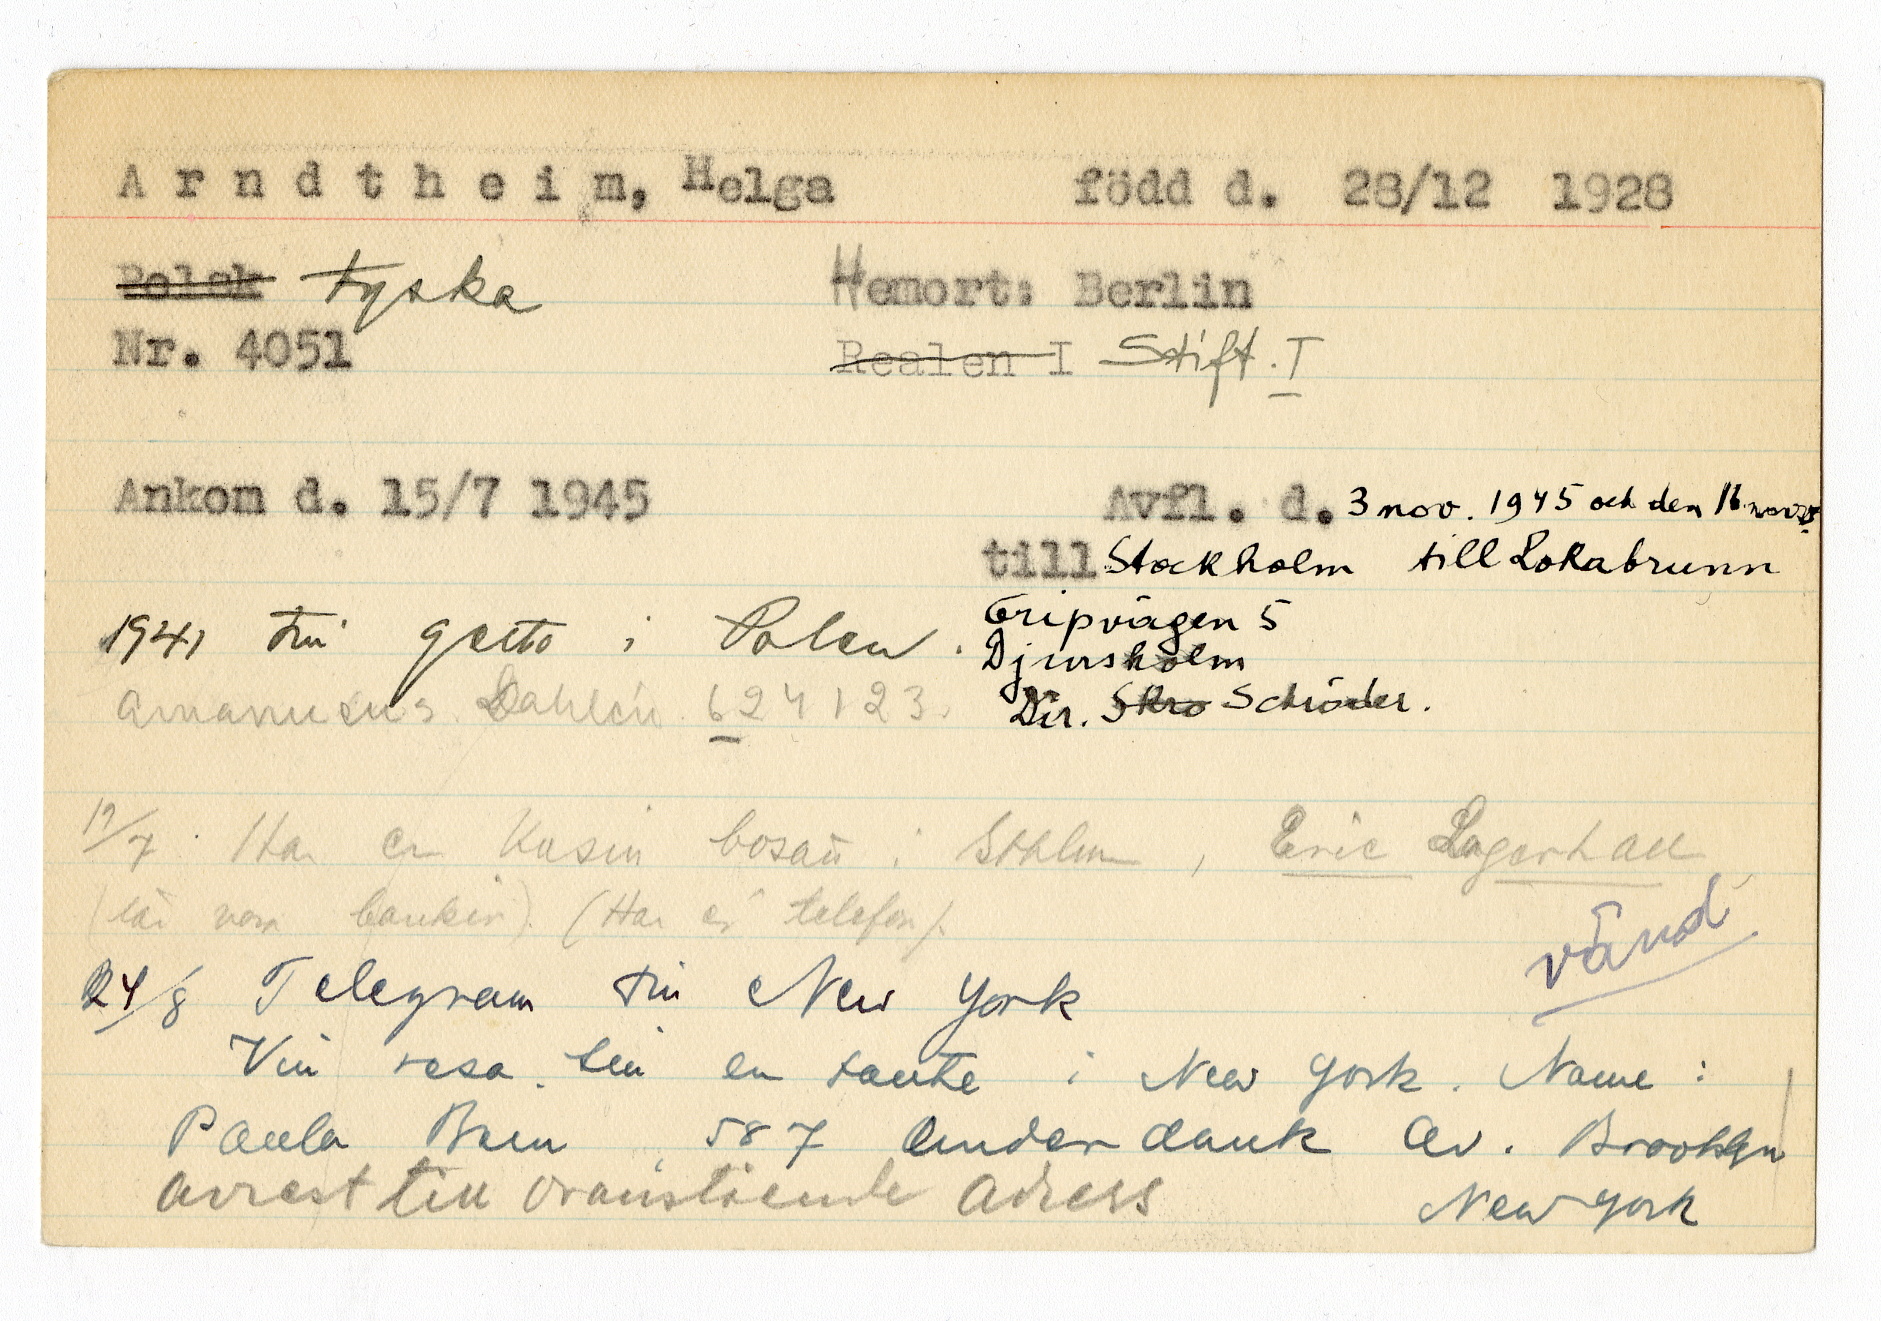 Arndtheim, Helga född d. 28/12 1928
Polsk tyska Hemort: Berlin
Nr. 4051 Realen I Stift. I
Ankom d. 15/7 1945 Avfl. d. 3 nov. 1945 och den 16 nov.
till Stockholm till Lokabrunn
Gripvägen 5
1941 till getto i Polen.
Djursholm
amanuens Dahlén 624123.
Dir. Skro Schröder.
19/7. Har en kusin bosatt i Sthlm, Eric Lagerhall
(lär vara bankir). (Har ej telefon).
vänd
24/8 Telegram till New York
Vill resa till en tante i New York. Name:
Paula 587 Av. Brooklyn
New York
Avrest till ovanstående adress